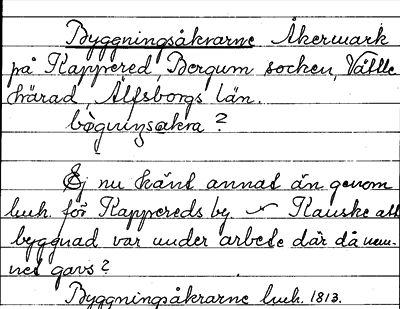 Byggningsåkrarne Åkermark
på Kappered, Bergum socken, Vättle
härad, Älfsborgs län.
bògnıŋsακra ?
Ej nu känt annat än genom
luh. för Kappereds by. Kanske att
byggnad var under arbete där då nam-
net gavs?
Byggningsåkrarne luh. 1813.